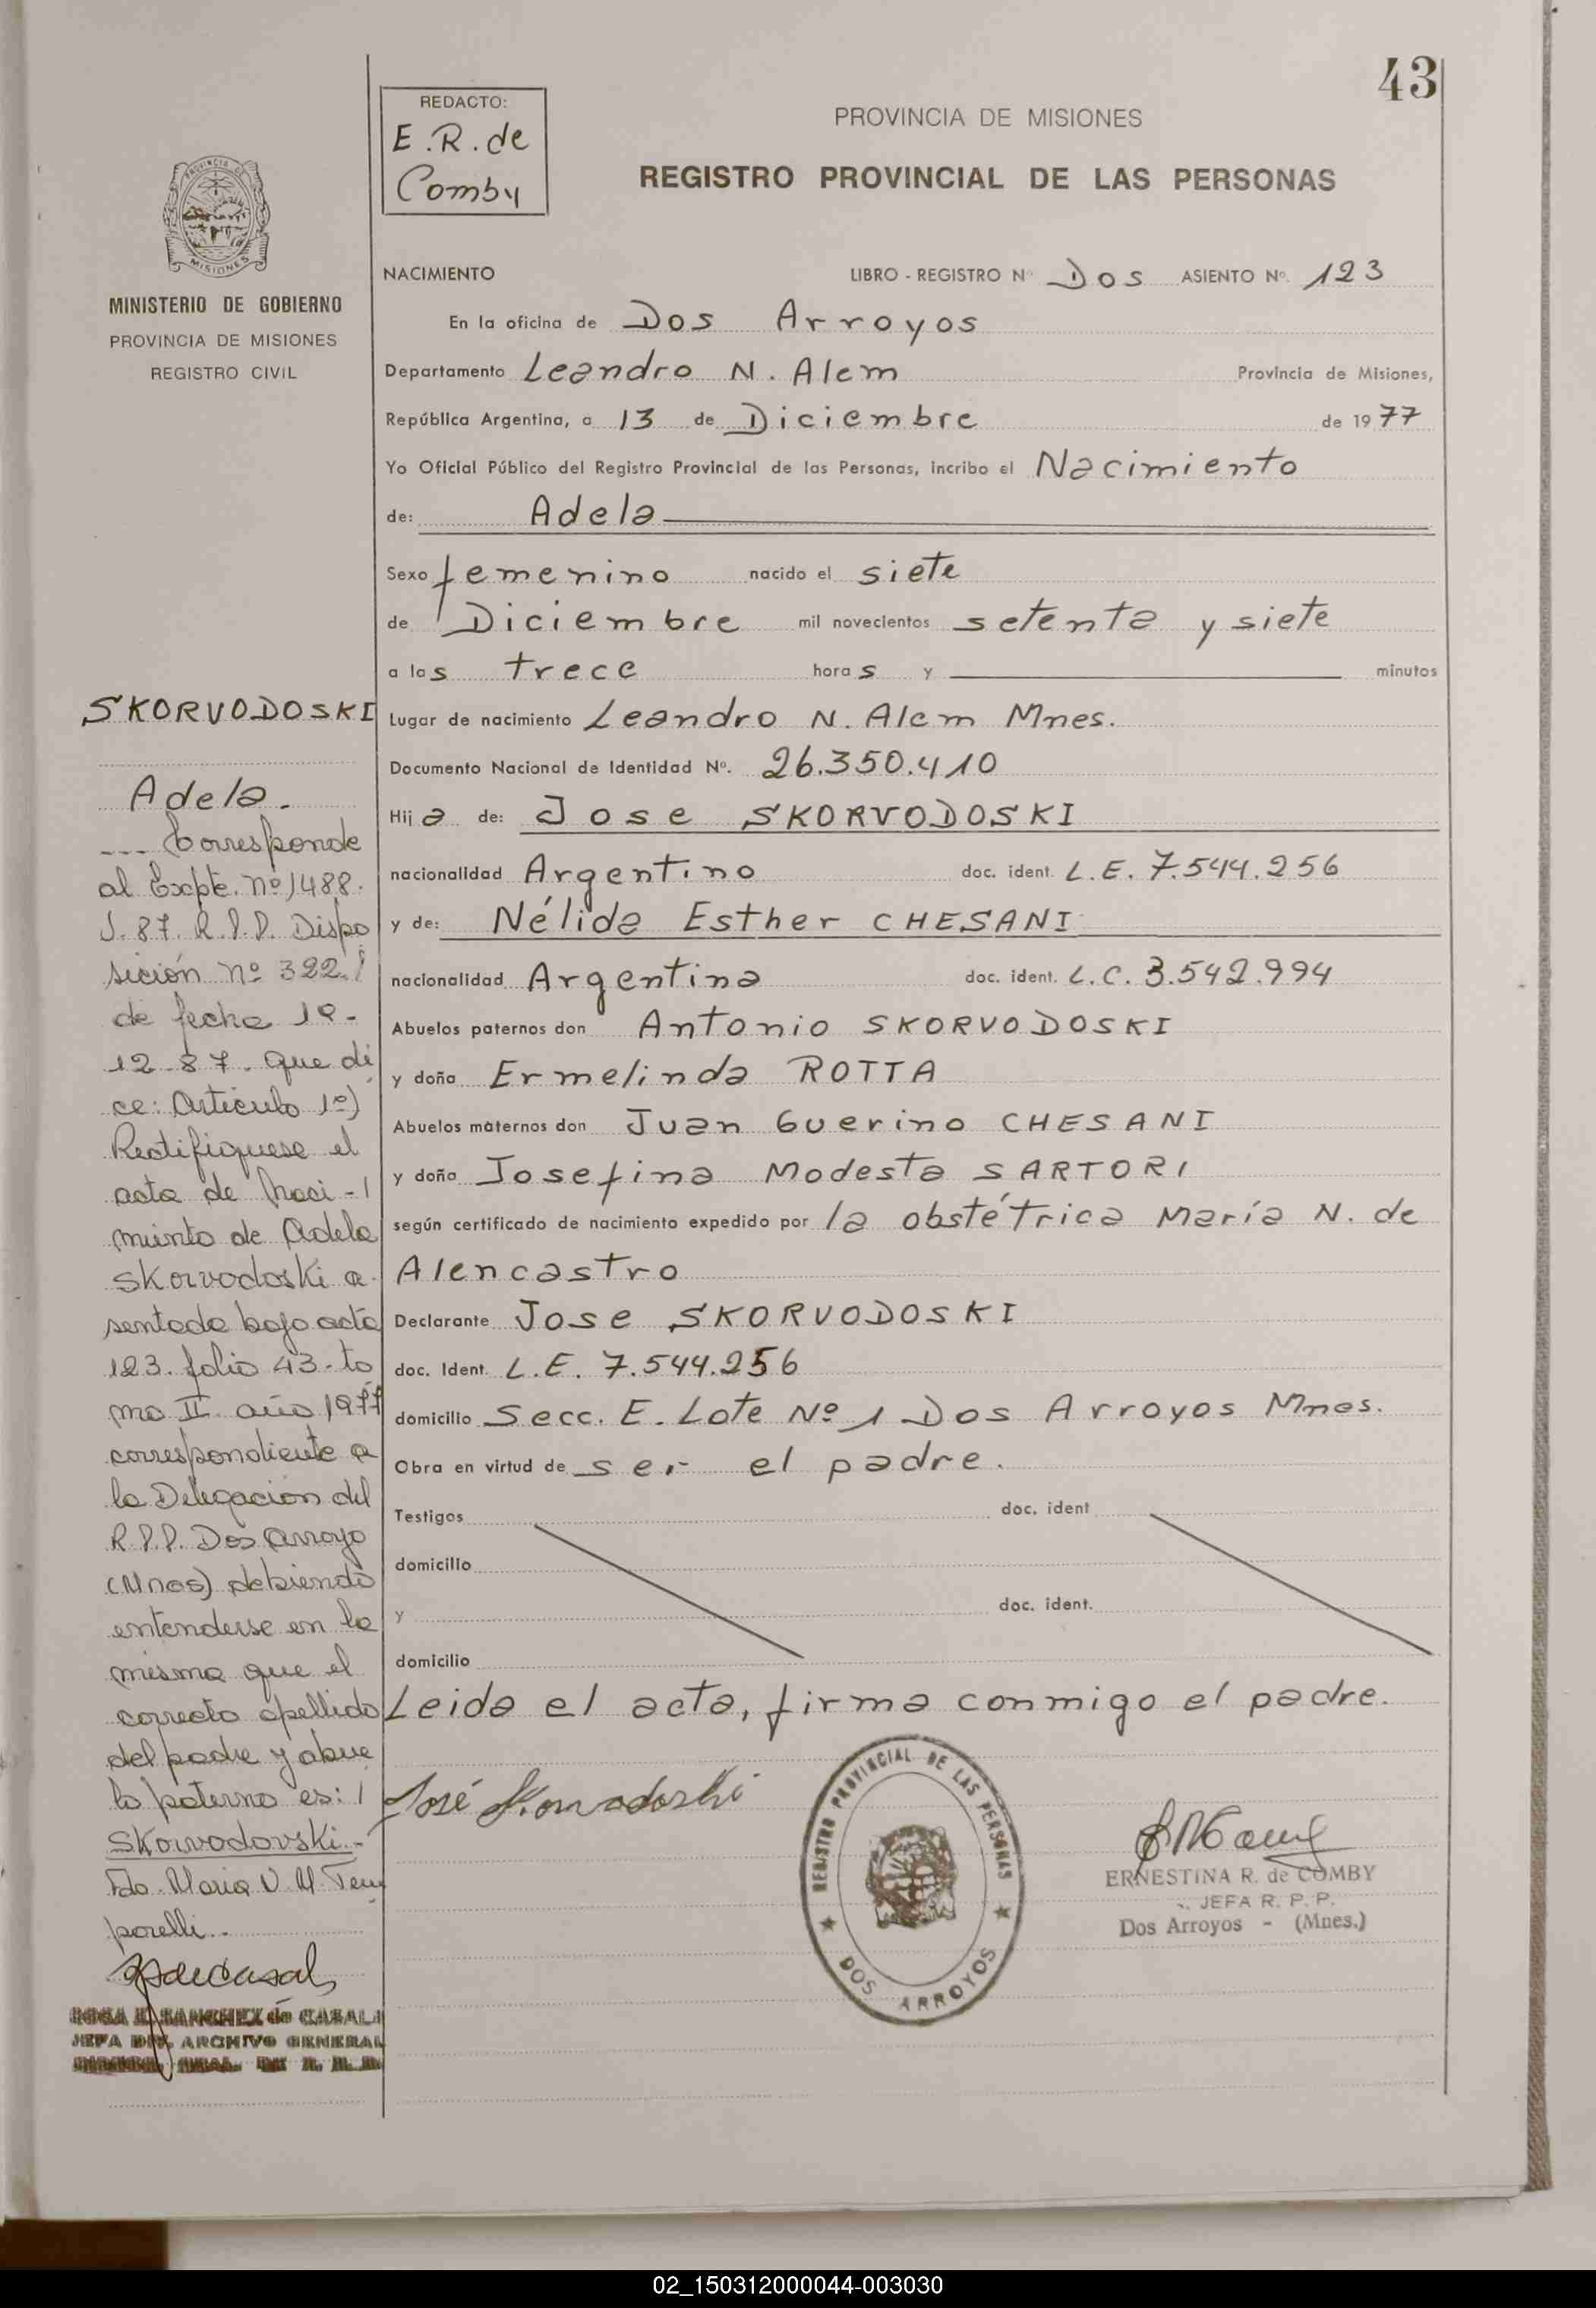 43
REDACTO:
E.R.de
Comby
PROVINCIA DE MISIONES
REGISTRO PROVINCIAL DE LAS PERSONAS
PROVINCIA DE
MISIONES
MINISTERIO DE GOBIERNO
PROVINCIA DE MISIONES
REGISTRO CIVIL
NACIMIENTO LIBRO - REGISTRO Nº Dos ASIENTO Nº. 123
En la oficina de Dos Arroyos
Departamento Leandro N. Alem Provincia de Misiones,
República Argentina, a 13 de Diciembre de 1977
Yo Oficial Público del Registro Provincial de las Personas, incribo el Nacimiento
de: Adela
Sexo femenino nacido el siete
de Diciembre mil novecientos setenta y siete
a las trece horas y minutos
Lugar de nacimiento Leandro N. Alem Mnes.
Documento Nacional de Identidad Nº. 26.350.410
Hija de: Jose SKORVODOSKI
nacionalidad Argentino doc. ident. L.E. 7.544.256
y de: Nélida Esther CHESANI
nacionalidad Argentina doc. ident. L.C. 3.542.994
Abuelos paternos don Antonio SKORVODOSKI
y doña Ermelinda ROTTA
Abuelos maternos don Juan Guerino CHESANI
y doña Josefina Modesta SARTORI
según certificado de nacimiento expedido por la obstétrica María N. de
Alencastro
Declarante Jose SKORVODOSKI
doc. Ident. L.E. 7.544.256
domicilio Secc. E. Lote Nº 1 Dos Arroyos Mnes.
Obra en virtud de ser el padre.
Testigos doc. ident
domicilio
y doc. ident.
domicilio
Leida el acta, firma conmigo el padre.
José Skorvodoski
REGISTRO PROVINCIAL DE LAS PERSONAS
DOS ARROYOS
ERNESTINA R. de COMBY
JEFA R. P. P.
Dos Arroyos - (Mnes.)
SKORVODOSKI
Adela.
--- Corresponde
al Expte. nº 1488.
J. 87. R.P.P. Dispo
sición nº 322./
de fecha 1º-
12-87. que di
ce: Articulo 1º)
Rectifiquese el
acta de Naci-/
miento de Adela
Skorvodoski a
sentada bajo acta
123. folio 43. to
mo II. año 1977
correspondiente a
la Delegación del
R.P.P. Dos Arroyo
(Mnes) debiendo
entenderse en la
misma que el
correcto apellido
del padre y abue
lo paterno es: /
Skorvodovski.-
Fdo. Maria V. M. Tem
porelli..
ROSA E. SANCHEZ de CASALI
JEFA DPT. ARCHIVO GENERAL
02_150312000044-003030